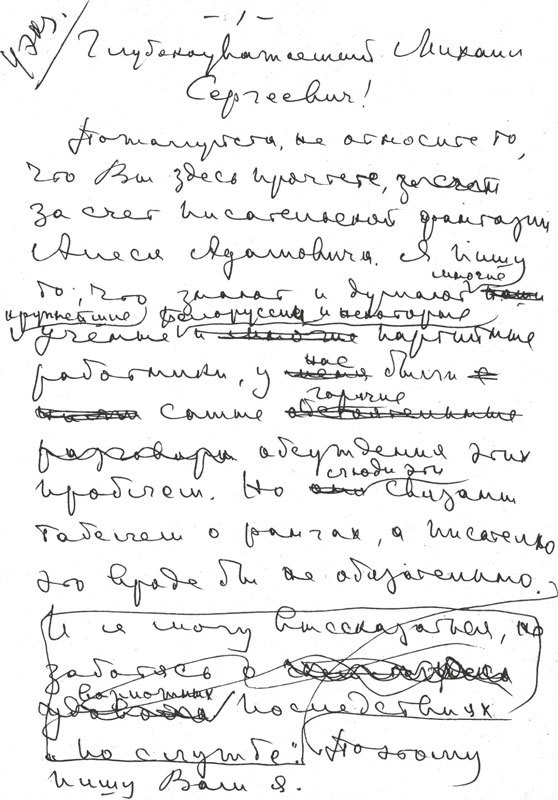 - 1 -
Глубокоуважаемый Михаил
Сергеевич!
Пожалуйста, не относите то,
что Вы здесь прочтете, за счет
за счет писательской фантазии
Алеся Адамовича. Я пишу
то, что знают и думают многие
крупнейшие белорусские и некоторые
ученые и многие партийные
работники, у меня нас были
самые горячие
разговоры обсуждения этих
проблем. Но они эти люди связаны
табелем о рангах, а писателю
это вроде бы не обязательно.
И я могу высказаться, не
заботясь о
возможных последствиях
"по службе". Поэтому
пишу Вам я.